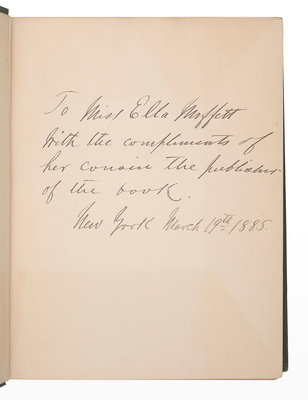 To Miss Ella Moffett
With the compliments of
her cousin the publisher
of the book.
New York March 19th 1885.